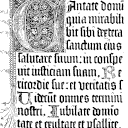 Cantate domi
quia mirabili
vit sibi dextera
sanctum eius
salutare suum: in conspe
vit iusticiam suam. Re
ricordie sue: et veritatis s
Viderunt omnes termini
nostri. Iubilate domino
tate et exultate et psallite